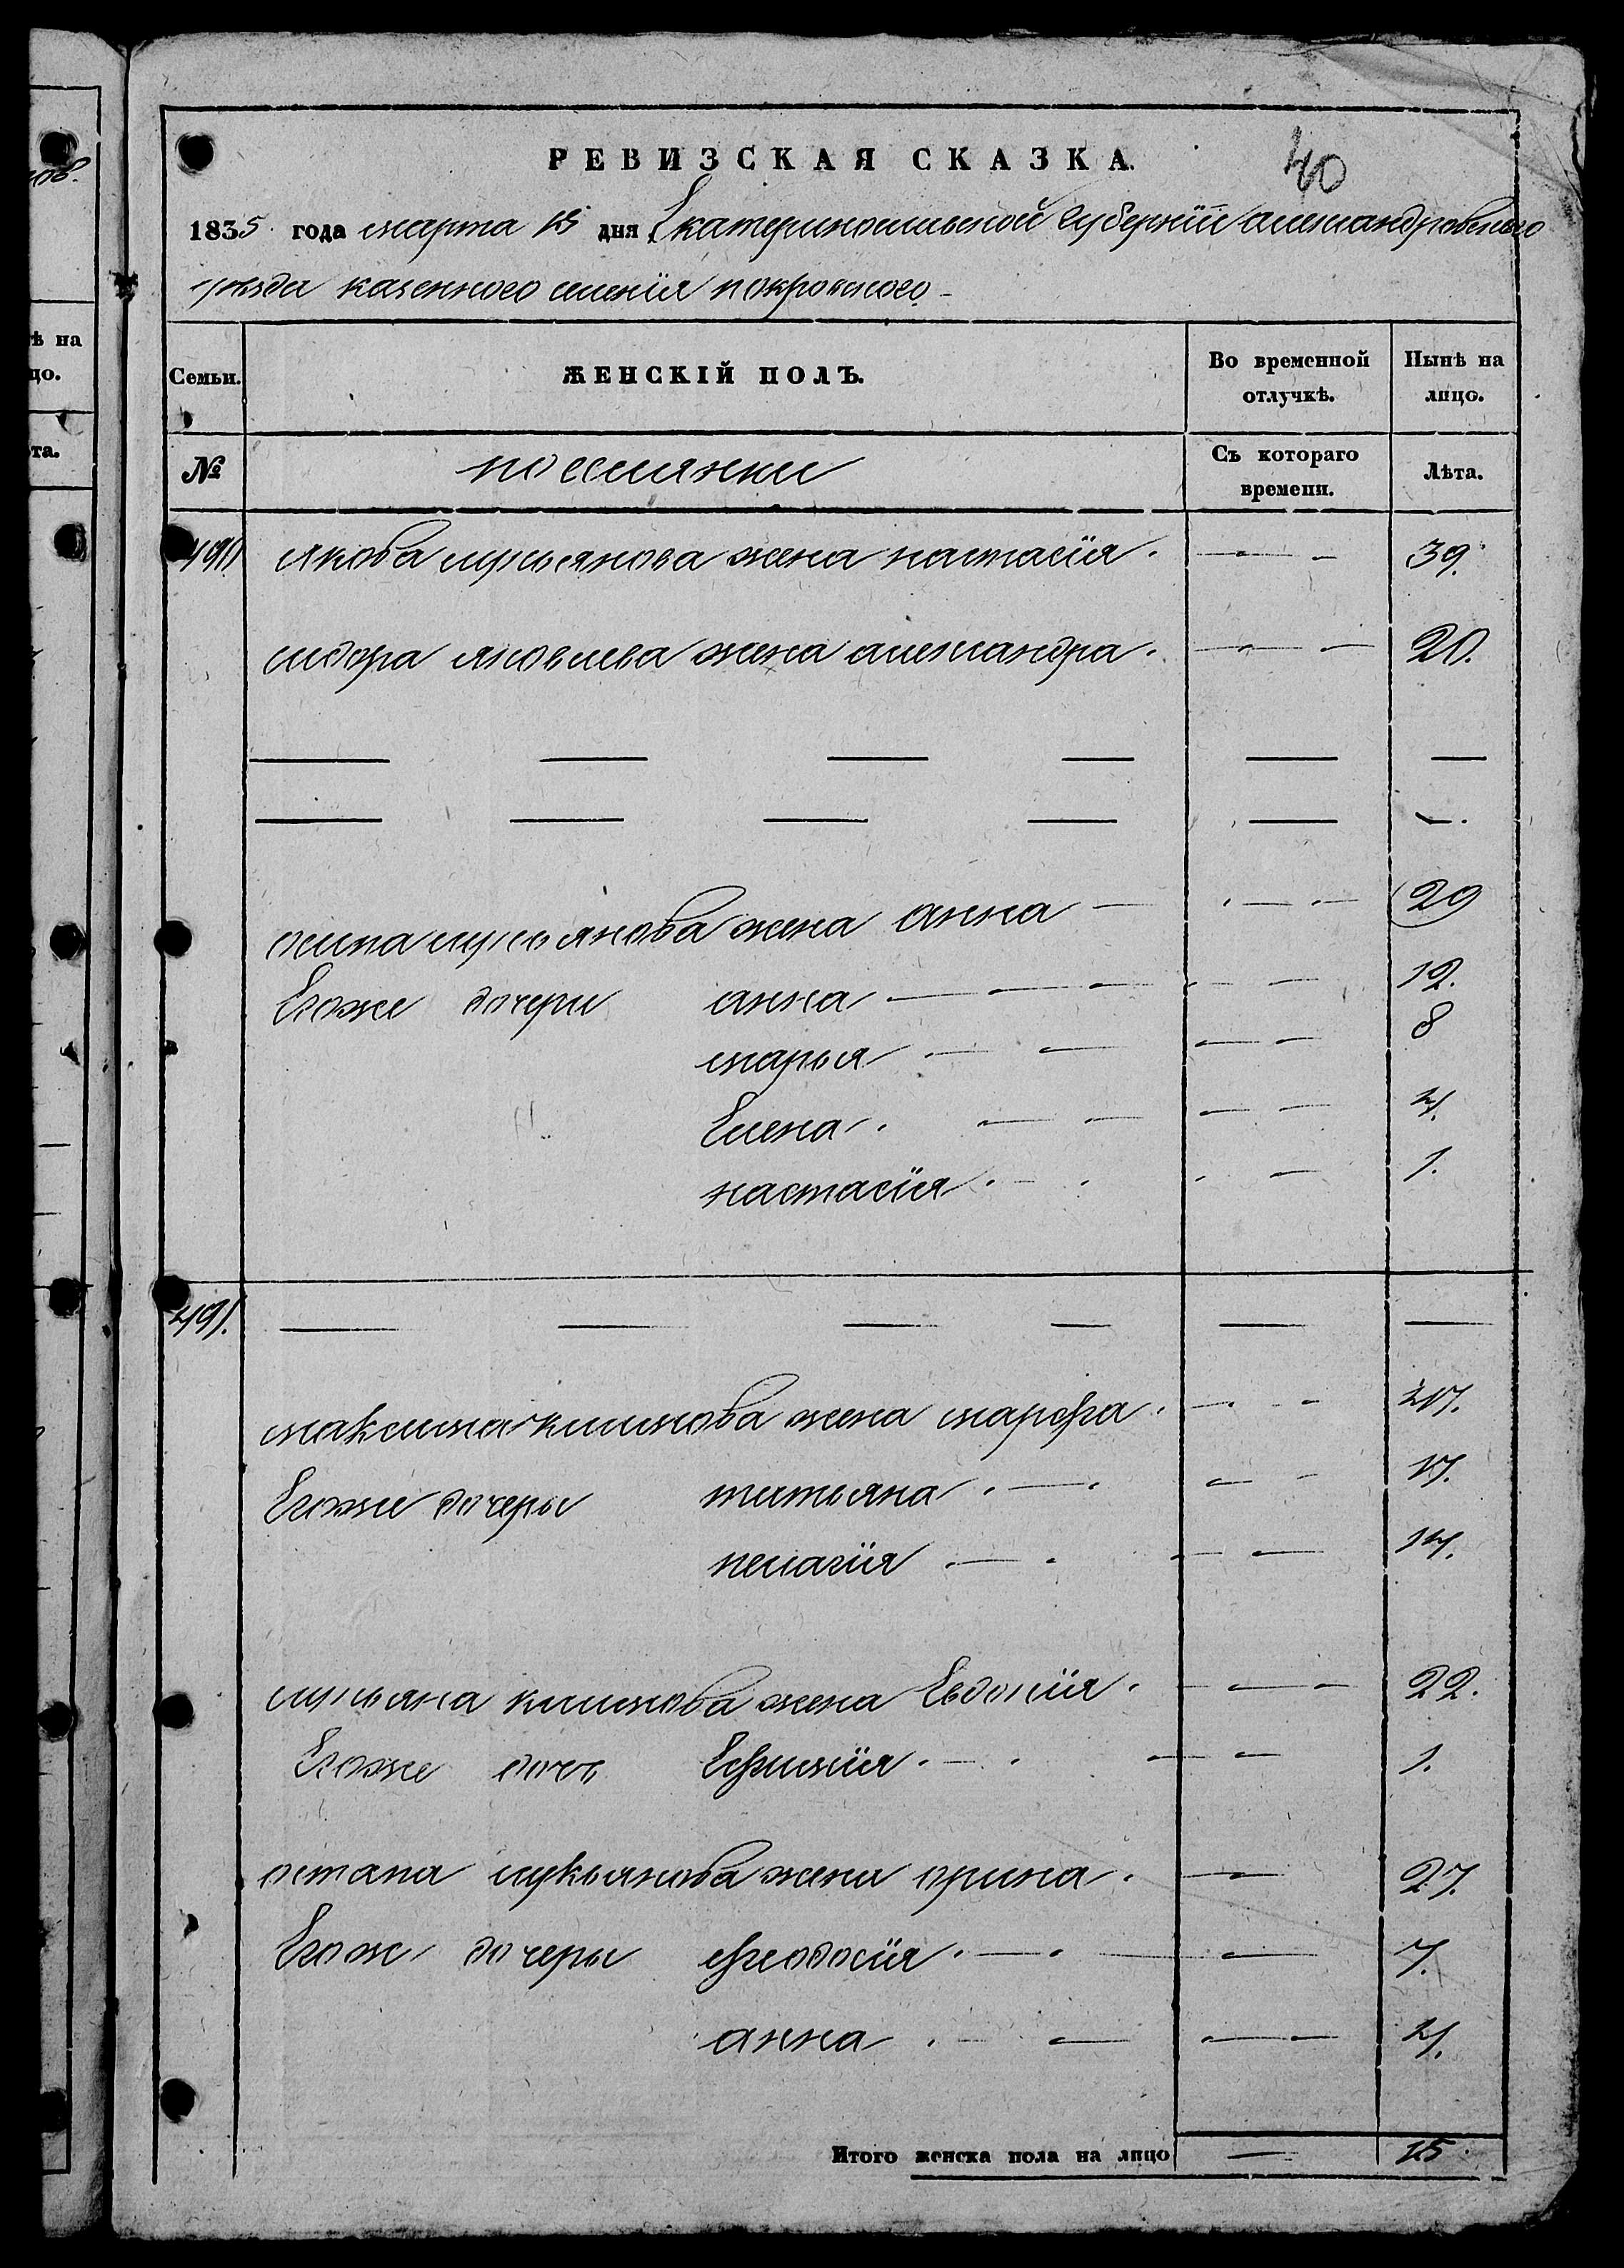 РЕВИЗСКАЯ СКАЗКА.
40
1835 года марта 15 дня Екатеринославской губернїи александровского
уезда казенного селенїя покровского
Семьи. ЖЕНСКІЙ ПОЛЪ. Во временной отлучкѣ. Нынѣ на лицо.
№ поселянки Съ котораго времени. Лѣта.
490 якова лукьянова жена настасїя. 39.
сидора яковлева жена александра. 20.
осипа лукьянова жена анна 29
Егоже дочери анна 12.
марья 8
Елена 4.
настасїя 1.
491.
максима климова жена марфа.
Егоже дочеры татьяна.
пелагїя 14.
лукьяна климова жена Евдокїя. 22.
Егоже дочь Ефимїя. 1.
остапа лукьянова жена орина. 27.
Егож дочеры феодосїя. 7.
анна 4.
Итого женска пола на лицо 15
ѣ на
цо.
та.